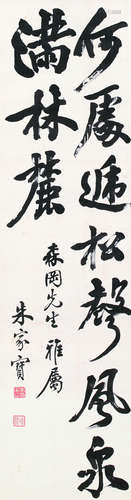 何處遞松聲風泉
滿林麓
森岡先生雅屬
朱家寶